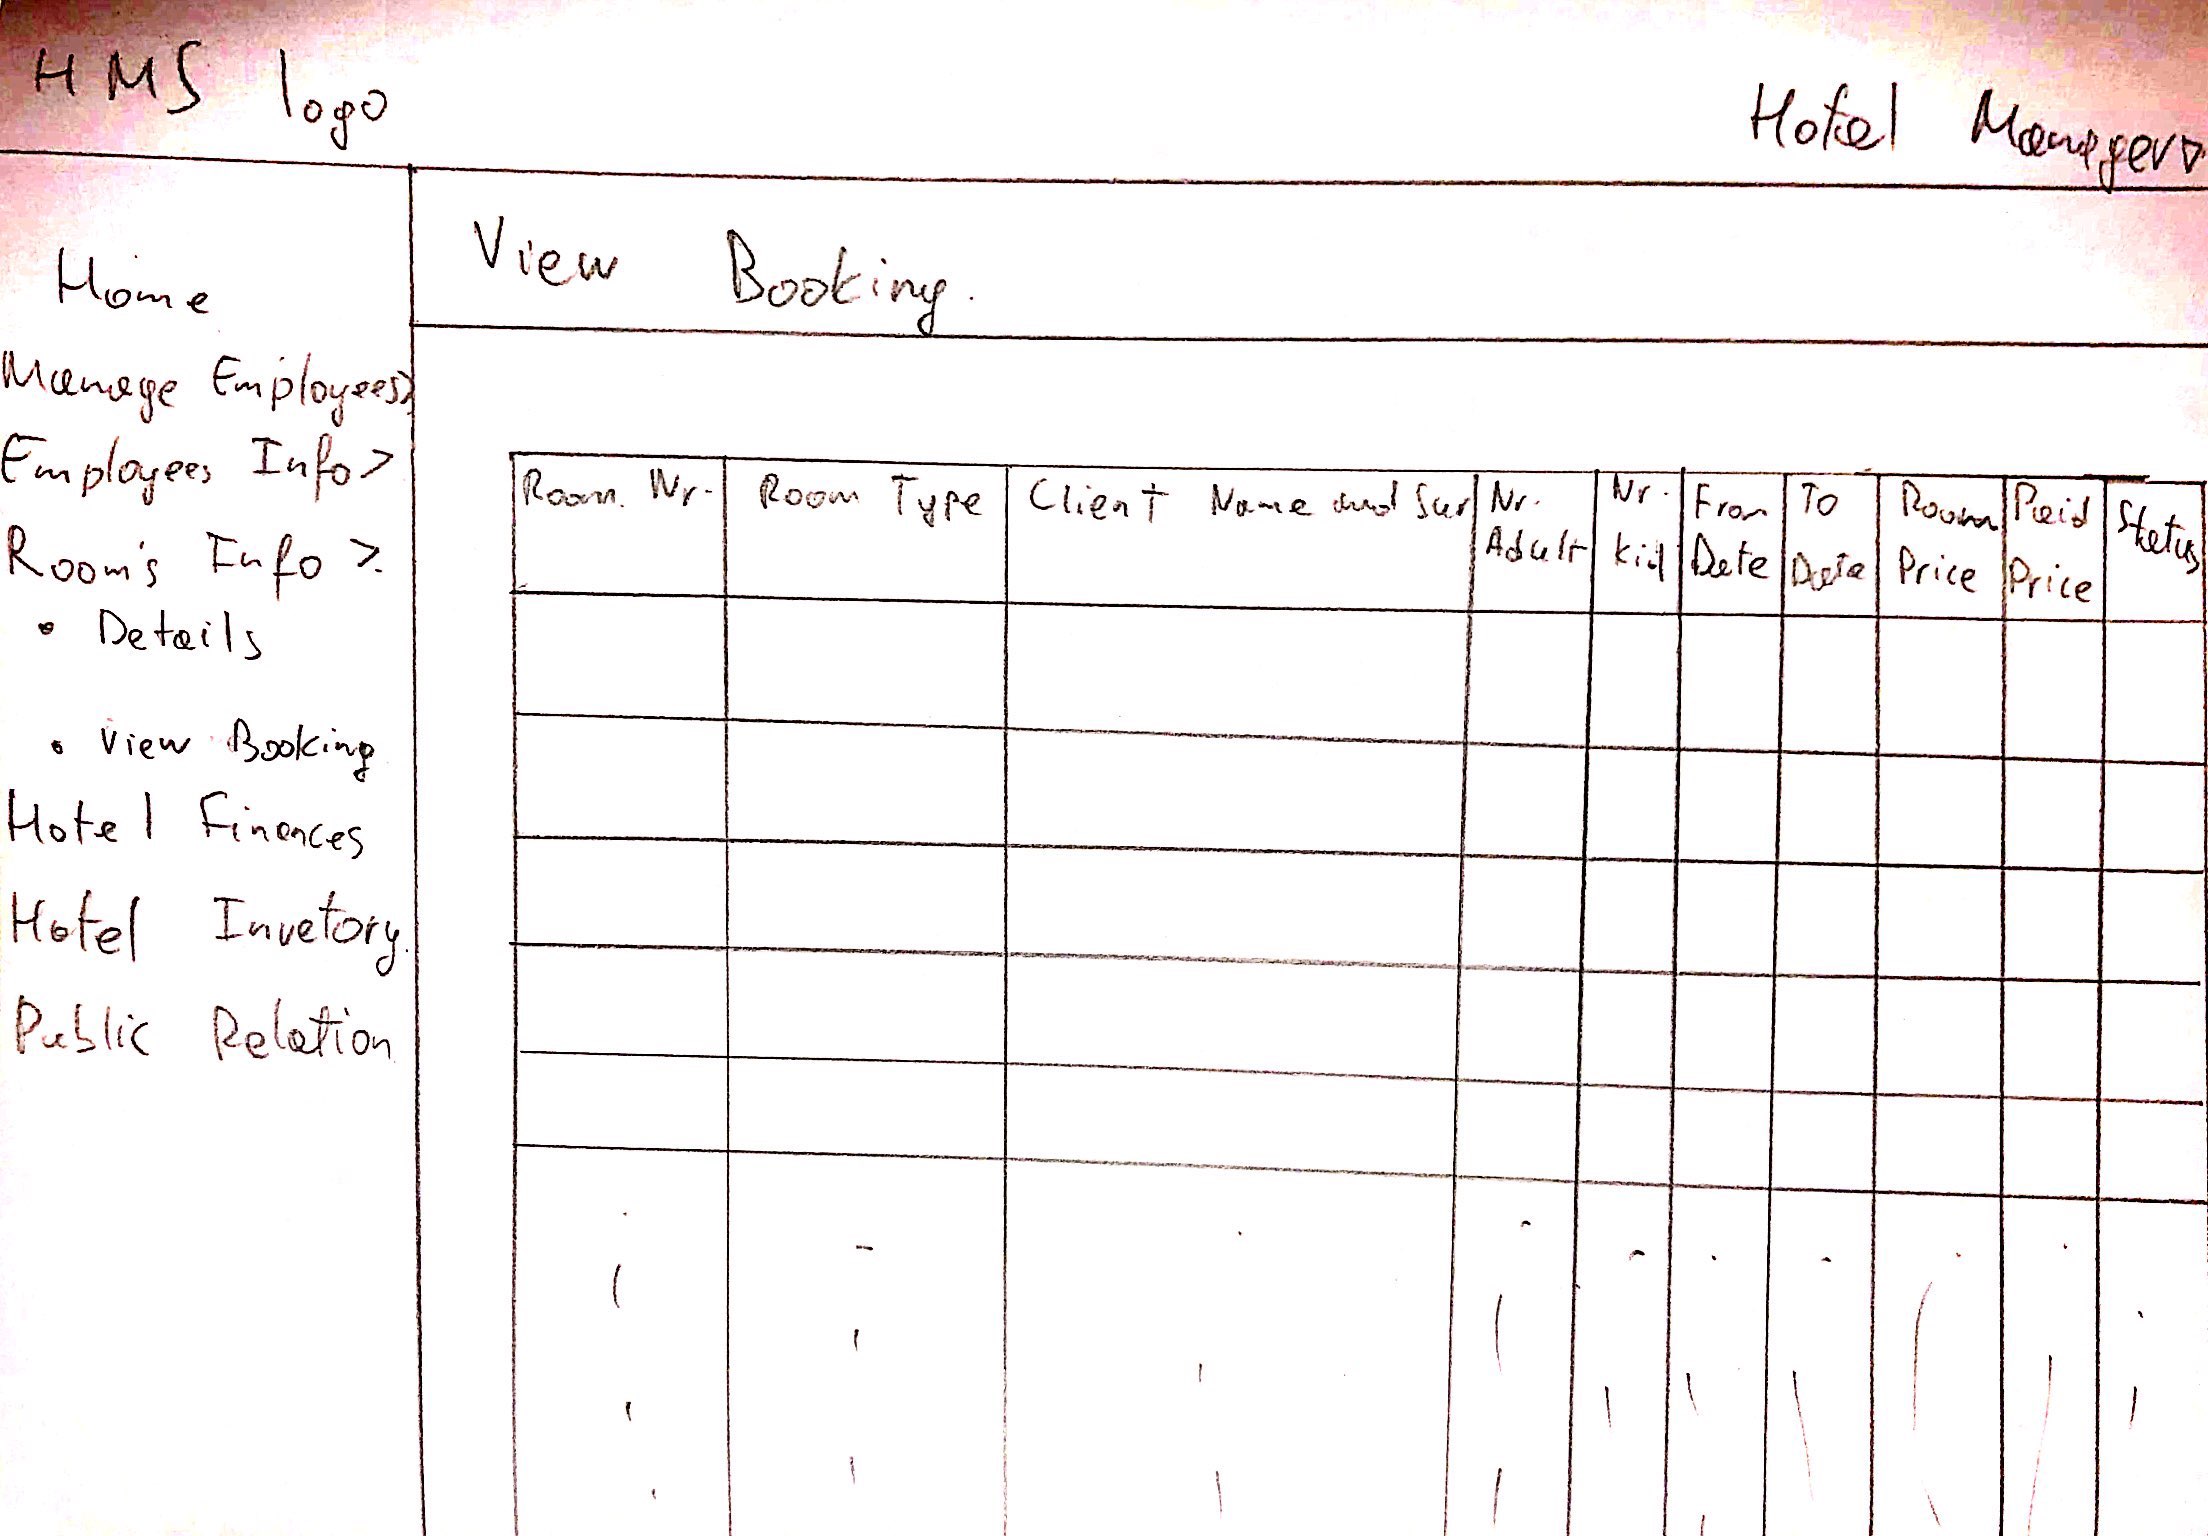 HMS logo
Hotel Manager ▷
Home
Manage Employees >
Employees Info >
Room's Info >.
• Details
• View Booking
Hotel Finances
Hotel Invetory.
Public Relation
View Booking.
Room. Nr.
Room Type
Client Name and Sur
Nr.
Adult
Nr.
kid
From
Date
To
Date
Room
Price
Paid
Price
Status